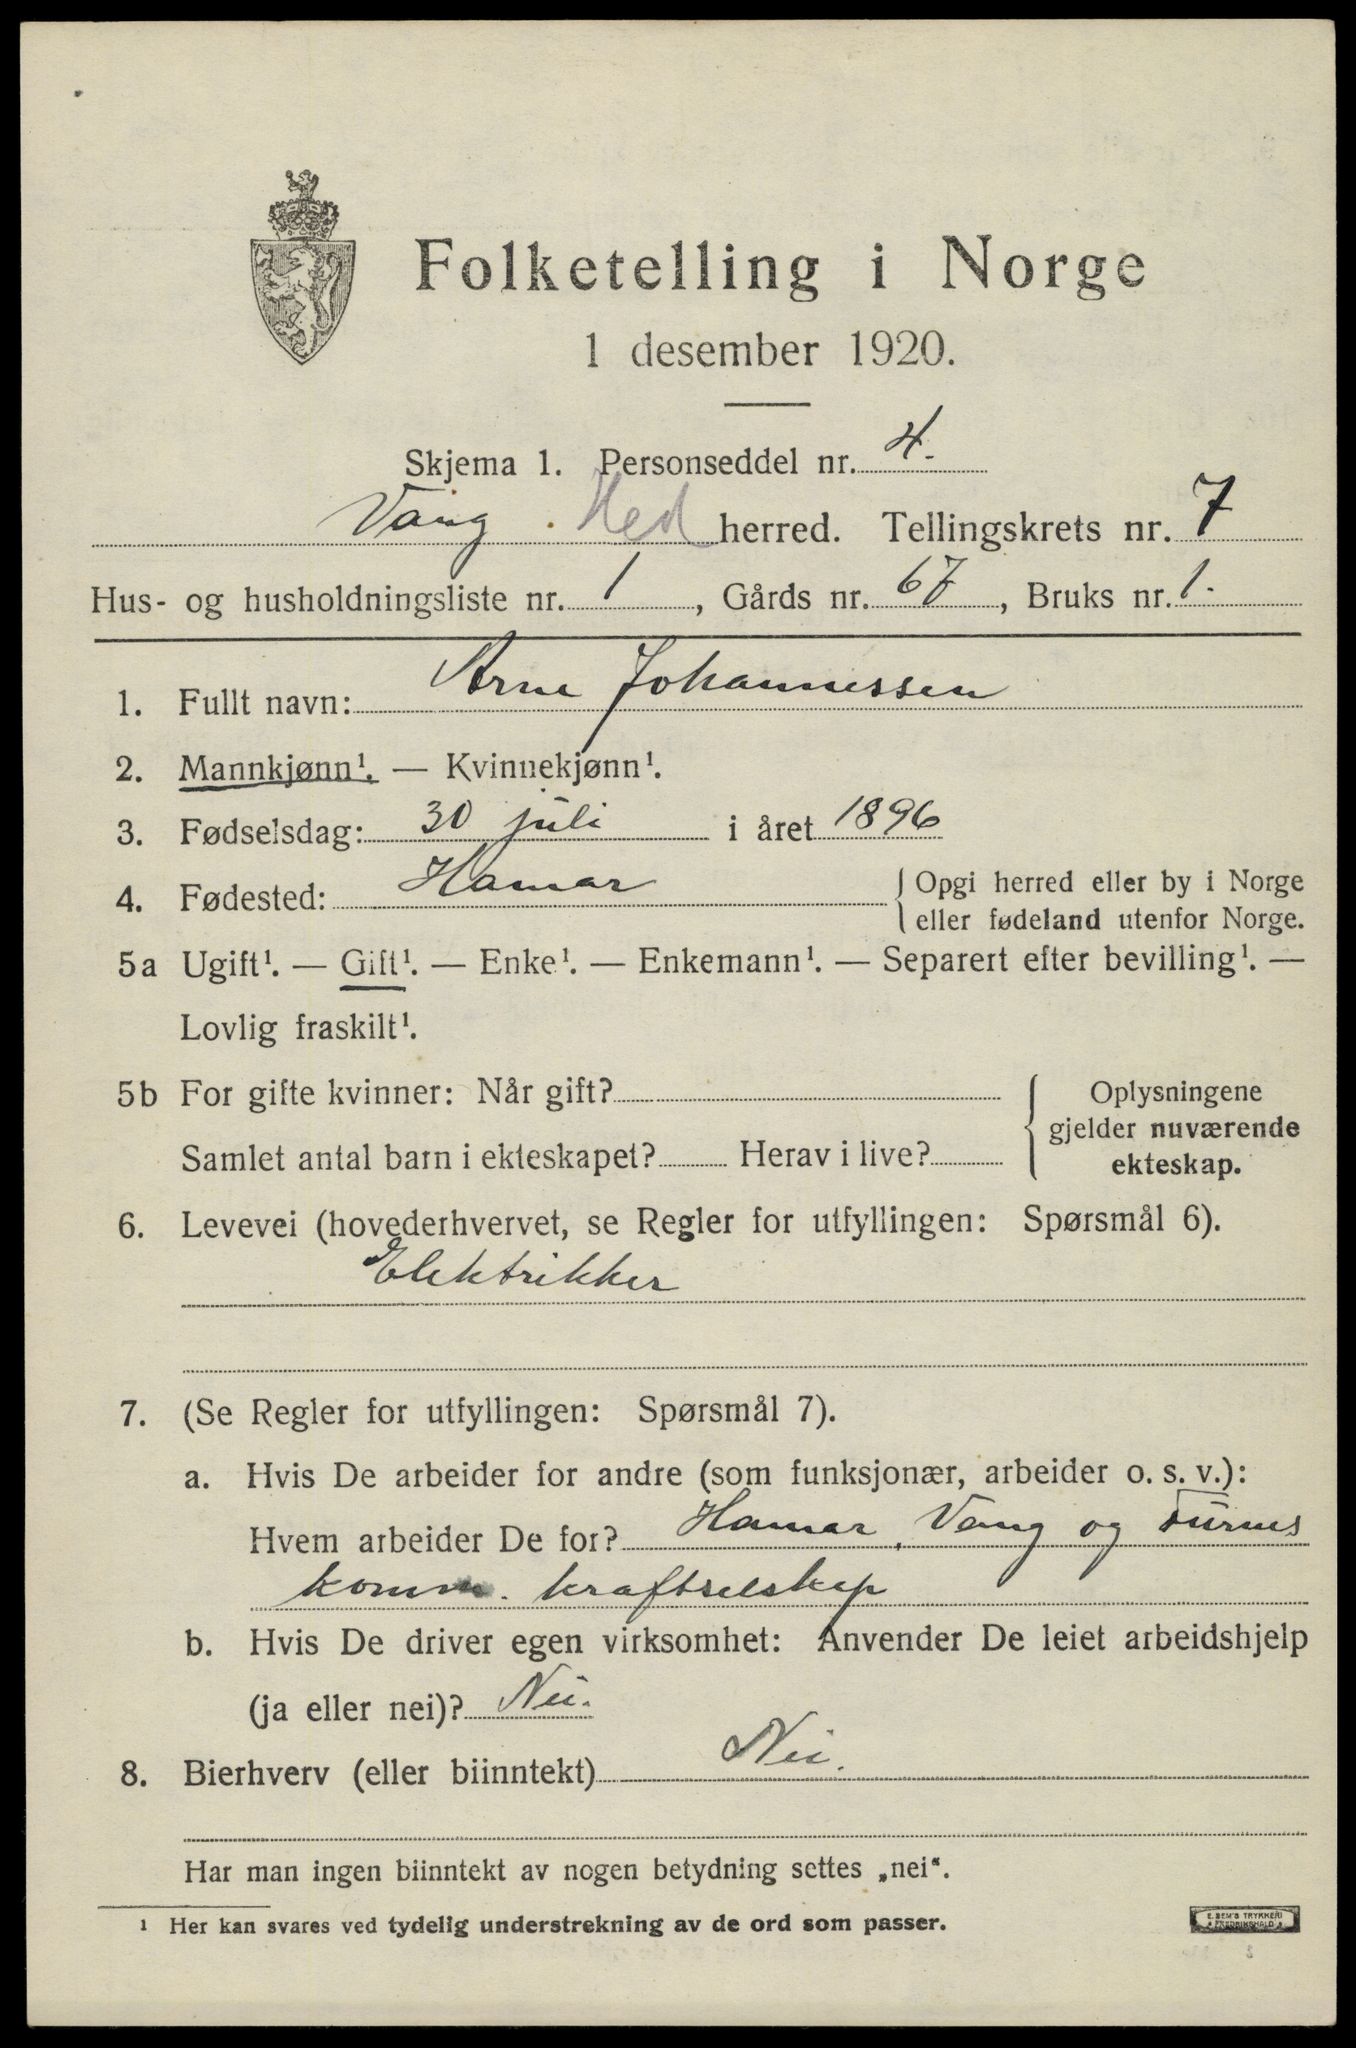 Folketelling i Norge
1 desember 1920.
Skjema 1. Personseddel nr. 4.
Vang. Hed herred. Tellingskrets nr. 7
Hus- og husholdningsliste nr. 1, Gårds nr. 67, Bruks nr. 1.
1. Fullt navn: Arne Johannessen
2. Mannkjønn¹. — Kvinnekjønn¹.
3. Fødselsdag: 30 juli i året 1896
4. Fødested: Hamar { Opgi herred eller by i Norge
eller fødeland utenfor Norge.
5a Ugift¹. — Gift¹. — Enke¹. — Enkemann¹. — Separert efter bevilling¹. —
Lovlig fraskilt¹.
5b For gifte kvinner: Når gift?
Samlet antal barn i ekteskapet? Herav i live?
Oplysningene
gjelder nuværende
ekteskap.
6. Levevei (hovederhvervet, se Regler for utfyllingen: Spørsmål 6).
Elektrikker
7. (Se Regler for utfyllingen: Spørsmål 7).
a. Hvis De arbeider for andre (som funksjonær, arbeider o. s. v.):
Hvem arbeider De for? Hamar, Vang og Furnes
komm. kraftselskap
b. Hvis De driver egen virksomhet: Anvender De leiet arbeidshjelp
(ja eller nei)? Nei.
8. Bierhverv (eller biinntekt) Nei.
Har man ingen biinntekt av nogen betydning settes „nei“.
¹ Her kan svares ved tydelig understrekning av de ord som passer.
E. SEM'S TRYKKERI
FREDRIKSHALD